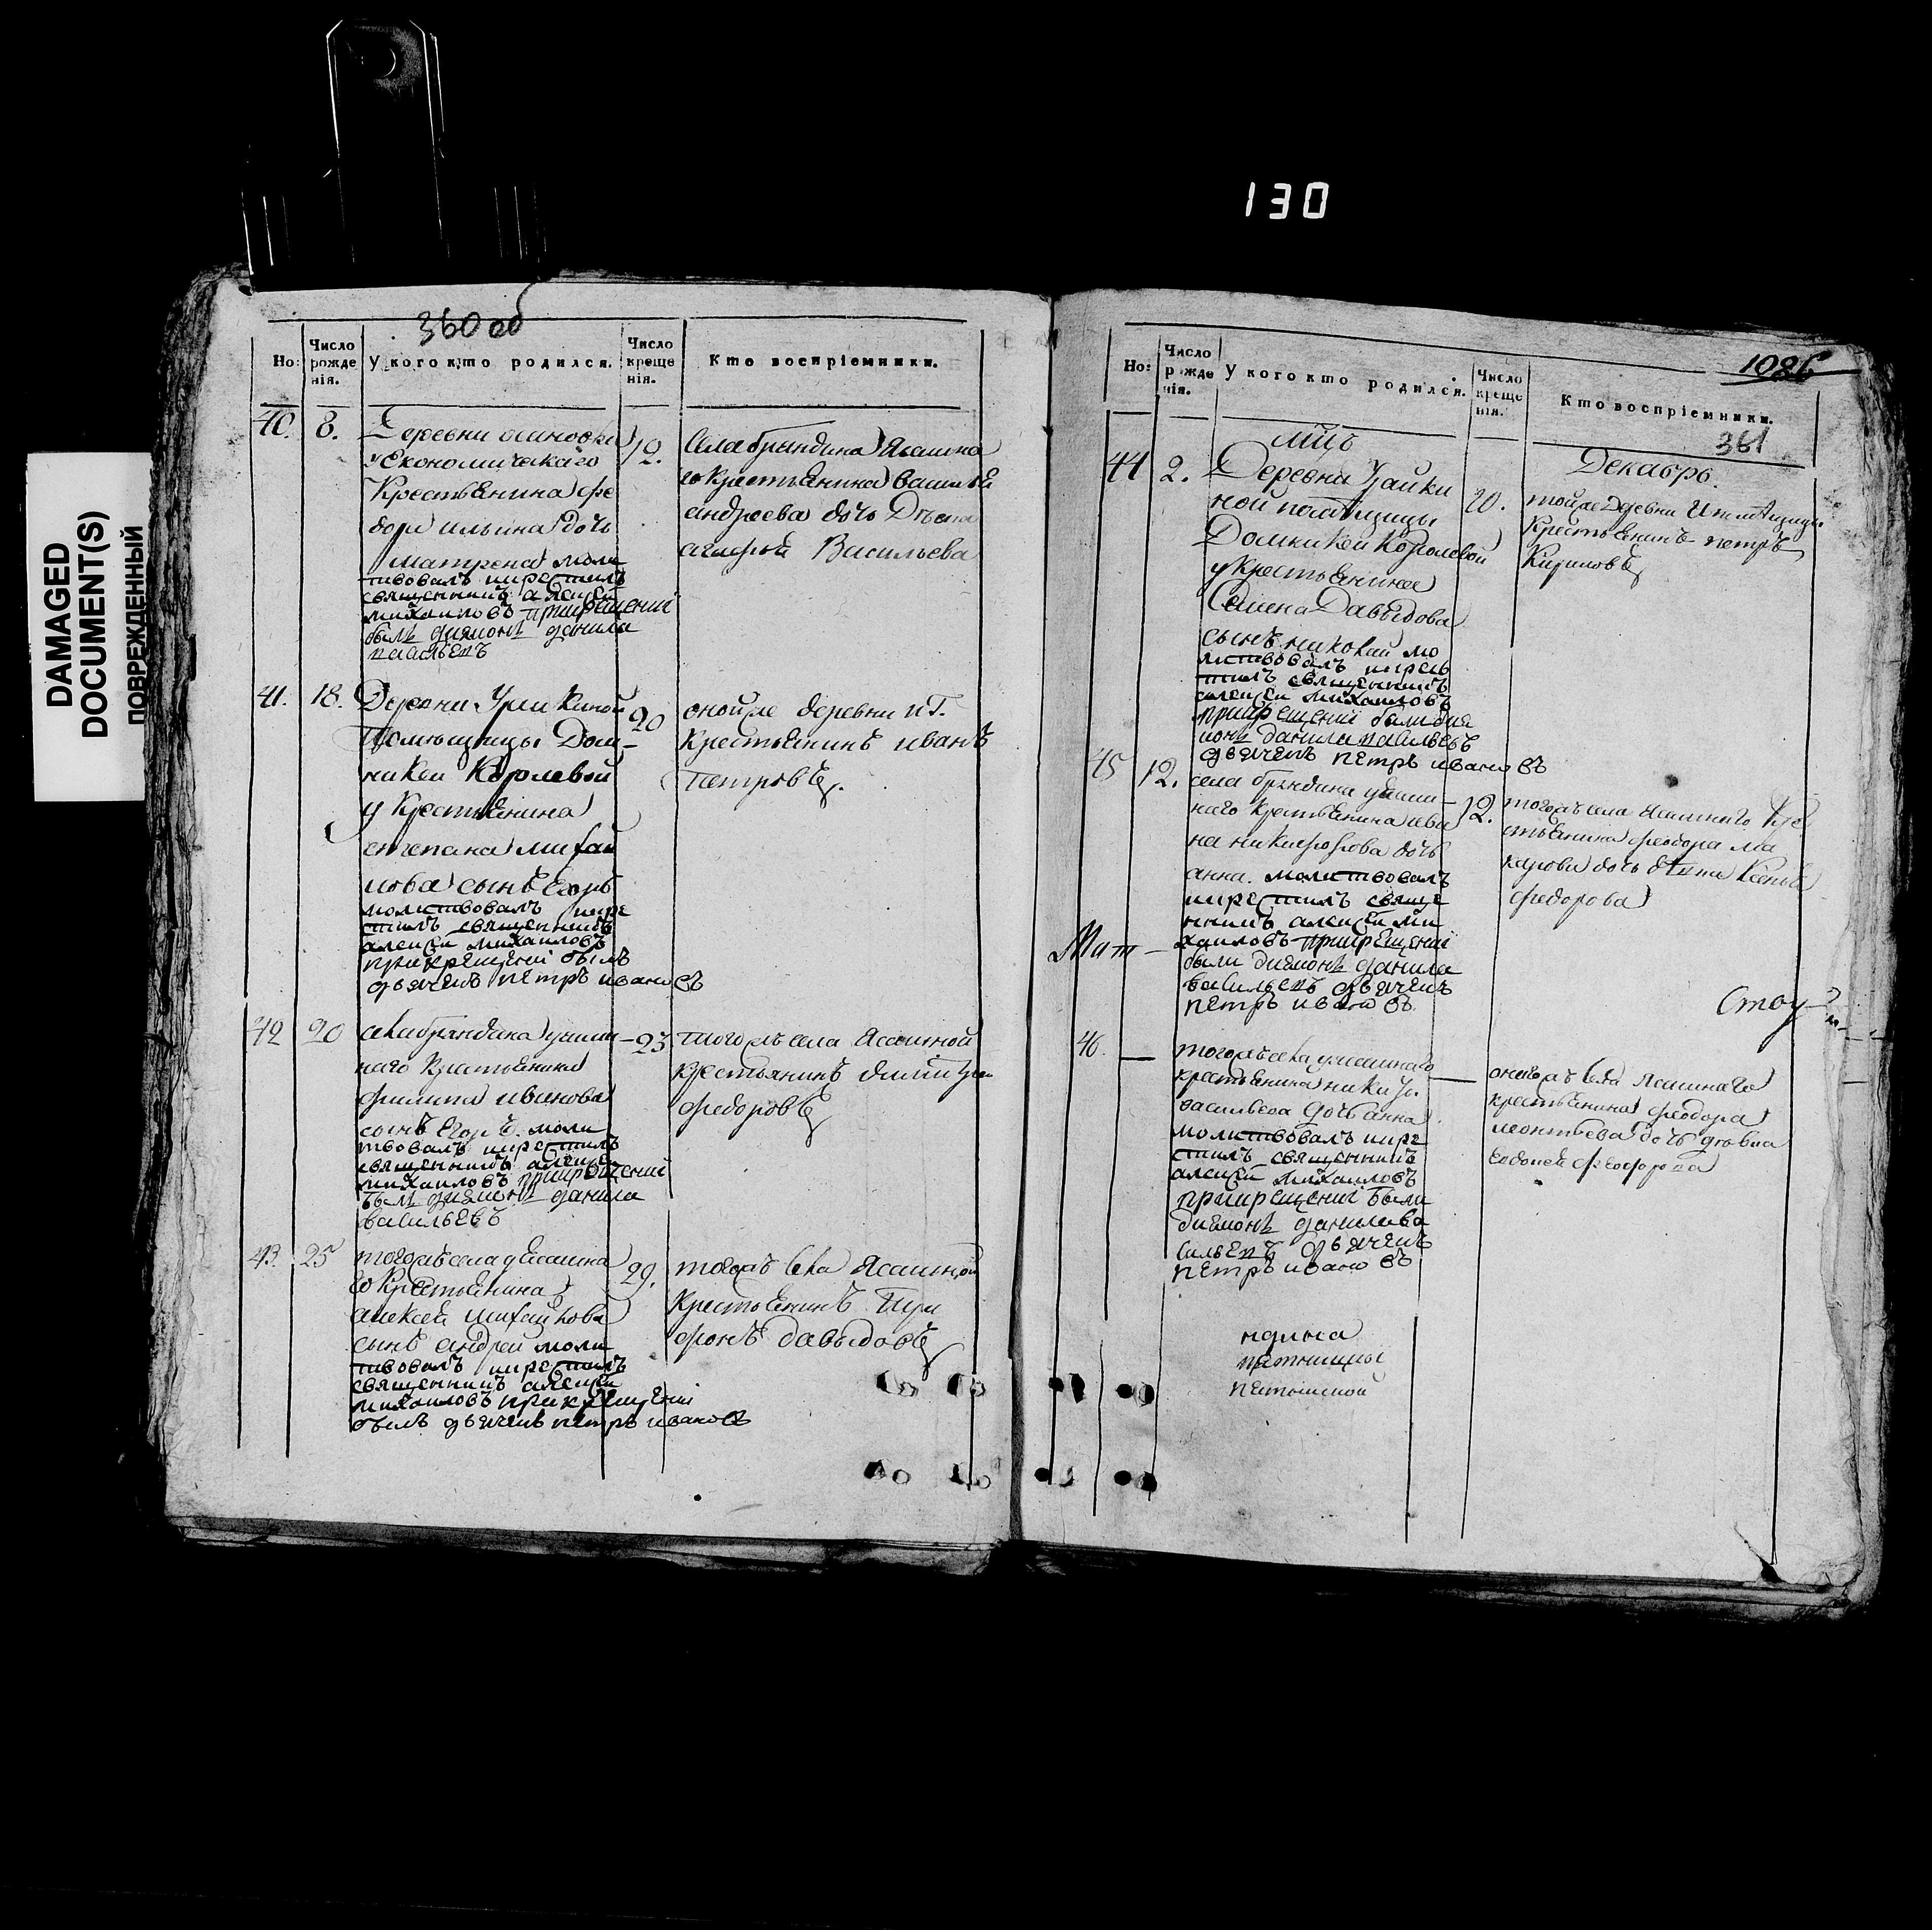 130
DAMAGED
DOCUMENT(S)
ПОВРЕЖДЕННЫЙ
360 об
Но:
Число рожде нія.
У кого кто родился.
Число креще нія.
Кто воспріемники.
40. 8.
Деревни
Економическаго
Крестьянина фе
дора ильина дочь
матрена моли
твовалъ икрестилъ
священникъ алексей
михаиловъ прикрещенїи
былъ дияконъ данила
васильевъ
12.
Села брындина Ясашна
го крестьянина василья
андреева дочь Девка
Васильева
41. 18.
Деревни
Помещицы Дом-
никеи Королевой
у Крестьянина
степана михай
лова сынъ Егоръ
молитвовалъ икре
стилъ священникъ
алексей михаиловъ
прикрещенїи былъ
дьячекъ петръ ивановъ
20
оной же деревни и Г.
крестьянинъ иванъ
петровъ.
42 20
села брындина уясаш-
наго крестьянина
филипа иванова
сынъ Егоръ. моли
твовалъ икрестилъ
священникъ алексей
михаиловъ прикрещенїи
былъ дияконъ данила
васильевъ
23
тогожъ села Ясашной
крестьянинъ димитрий
федоровъ
43. 25
тогожъ села уясашна
го Крестьянина
алексея михайлова
сынъ андрей моли
твовалъ икрестилъ
священникъ алексей
михаиловъ прикрещенїи
былъ дьячекъ петръ ивановъ
29.
тогожъ села Ясашной
Крестьянинъ Три
фонъ давыдовъ
1086
Но:
Число рожде нія.
У кого кто родился.
Число креще нія.
Кто воспріемники.
361
мцъ
Декабрь.
44 2.
Деревни
ной помещицы
Домникеи Королевой
укрестьянина
Семена Давыдова
сынъ николай мо
литвовалъ икрес
тилъ священникъ
алексей михаиловъ
прикрещенїи были дия
конъ данила васильевъ
дьячекъ петръ ивановъ
20.
тойже Деревни
Крестьянинъ петръ
Кириловъ
45 12.
села брындина уясаш-
наго крестьянина ива
на никифорова дочь
анна. молитвовалъ
икрестилъ свяще
нникъ алексей ми
хаиловъ прикрещенїи
были дияконъ данила
васильевъ дьячекъ
петръ ивановъ
12.
тогожъ села Ясашнаго Кре
стьянина феодора ма
карова дочь
федорова
46. —
тогожъ села уясашнаго
крестьянина никиты
васильева дочь анна
молитвовалъ икре
стилъ священникъ
алексей михаиловъ
прикрещенїи были
дияконъ данила ва
сильевъ дьячекъ
петръ ивановъ
—
оногожъ села Ясашнаго
крестьянина феодора
леонтьева дочь девка
федорова